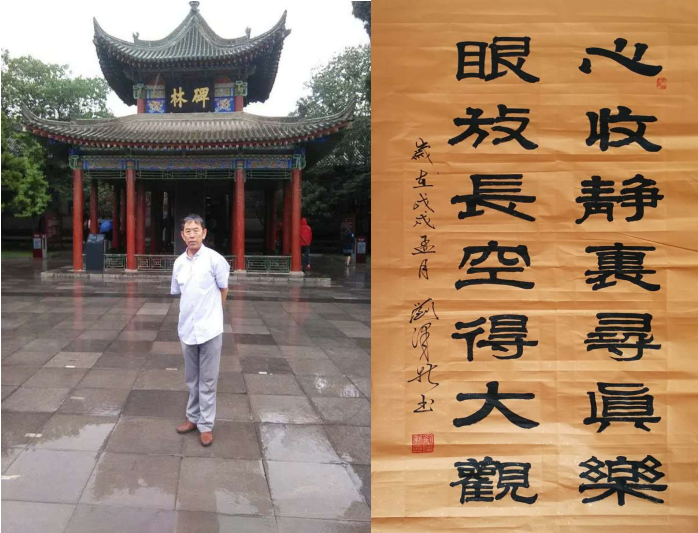 碑林
心收静裏尋眞樂
眼放長空得大觀
歲在戊戌孟月 澤 书